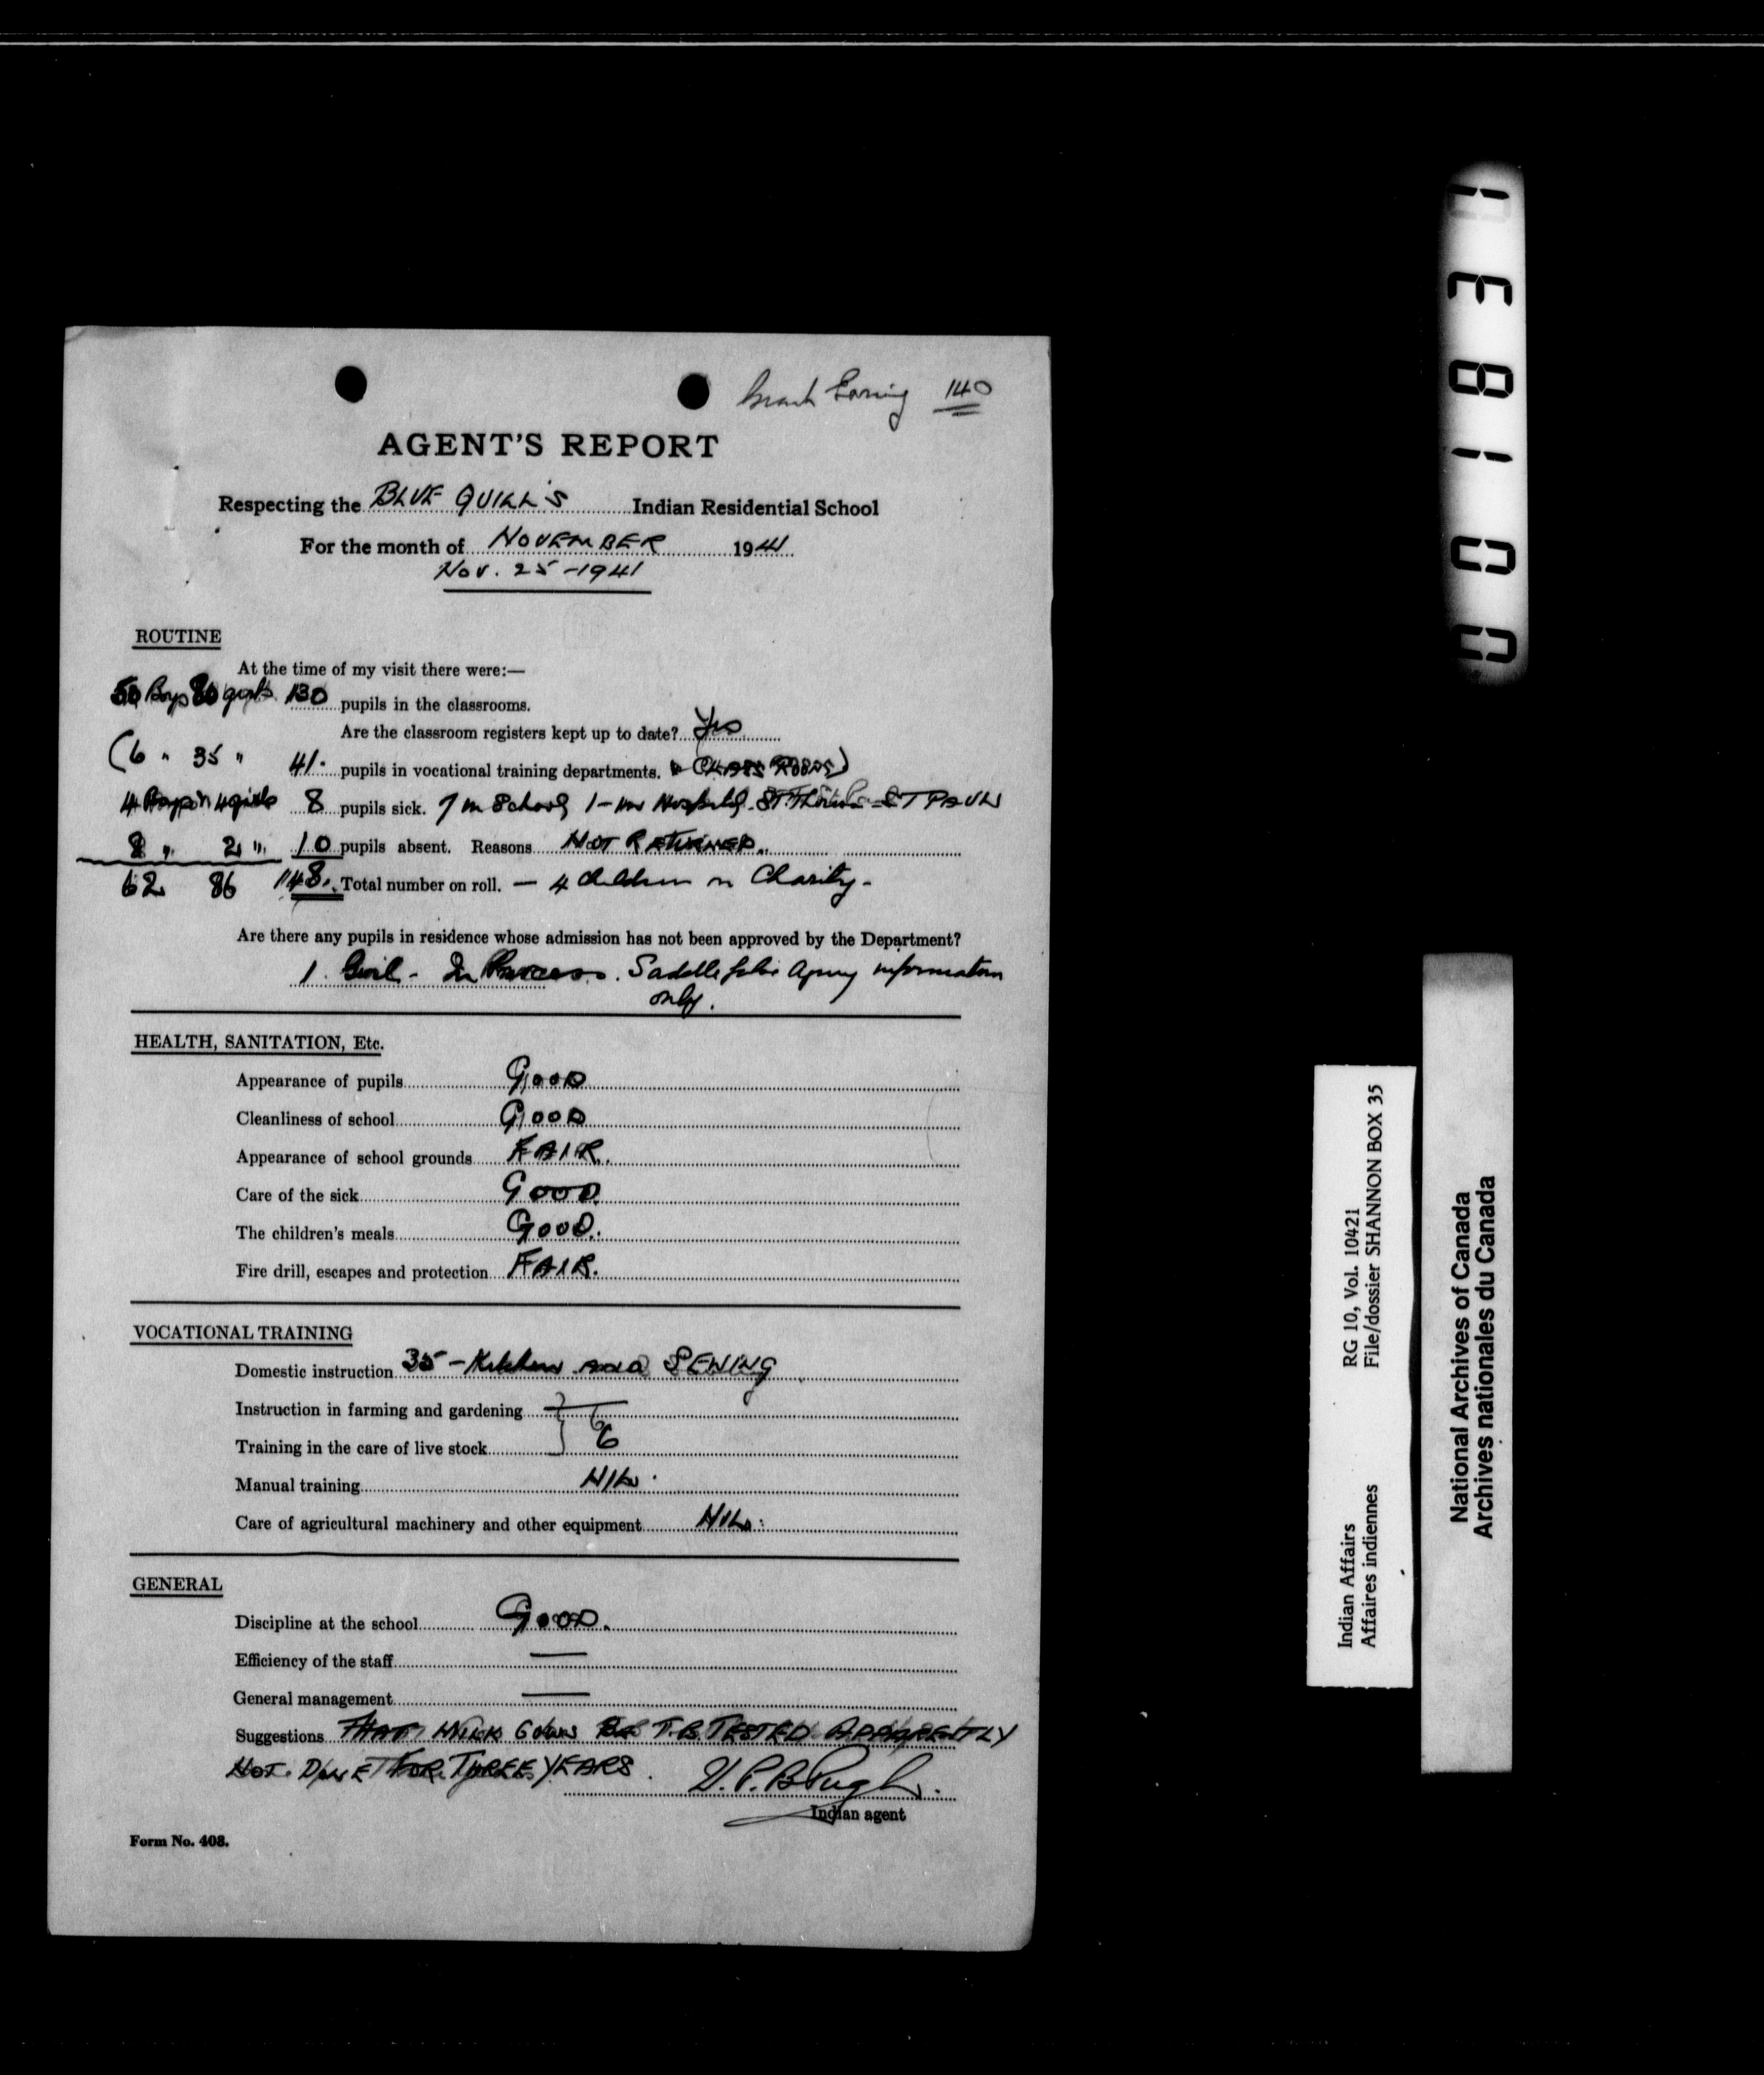 Grant Earning 140
AGENT'S REPORT
Respecting the BLUE QUILL'S Indian Residential School
For the month of NOVEMBER 1941
Nov. 25-1941
ROUTINE
At the time of my visit there were:—
50 Boys 80 girls 130 pupils in the classrooms.
Are the classroom registers kept up to date? Yes
(6 " 35 " 41. pupils in vocational training departments. CLASS ROOMS)
4 Boys 4 girls 8 pupils sick. 7 in School 1- in Hospital. ST. PAUL
8 " 2 " 10 pupils absent. Reasons NOT RETURNED.
62 86 148. Total number on roll. — 4 children on Charity-
Are there any pupils in residence whose admission has not been approved by the Department?
1. Girl - In Process. Saddle Lake Agency information
only.
HEALTH, SANITATION, Etc.
Appearance of pupils GOOD
Cleanliness of school GOOD
Appearance of school grounds FAIR.
Care of the sick GOOD.
The children's meals GOOD.
Fire drill, escapes and protection FAIR.
VOCATIONAL TRAINING
Domestic instruction 35 - Kitchen and SEWING
Instruction in farming and gardening
Training in the care of live stock } 6
Manual training NIL.
Care of agricultural machinery and other equipment NIL.
GENERAL
Discipline at the school GOOD.
Efficiency of the staff —
General management —
Suggestions THAT MILK COWS BE T.B. TESTED APPARENTLY
NOT DONE FOR THREE YEARS. W.P.B. Pugh.
Indian agent
Form No. 408.
001831
Indian Affairs RG 10, Vol. 10421
Affaires indiennes File/dossier SHANNON BOX 35
National Archives of Canada
Archives nationales du Canada